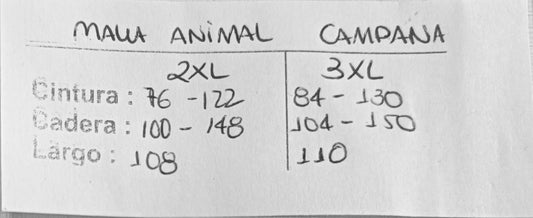 MALLA ANIMAL CAMPANA
2XL 3XL
Cintura : 76 - 122 84 - 130
Cadera : 100 - 148 104 - 150
Largo : 108 110